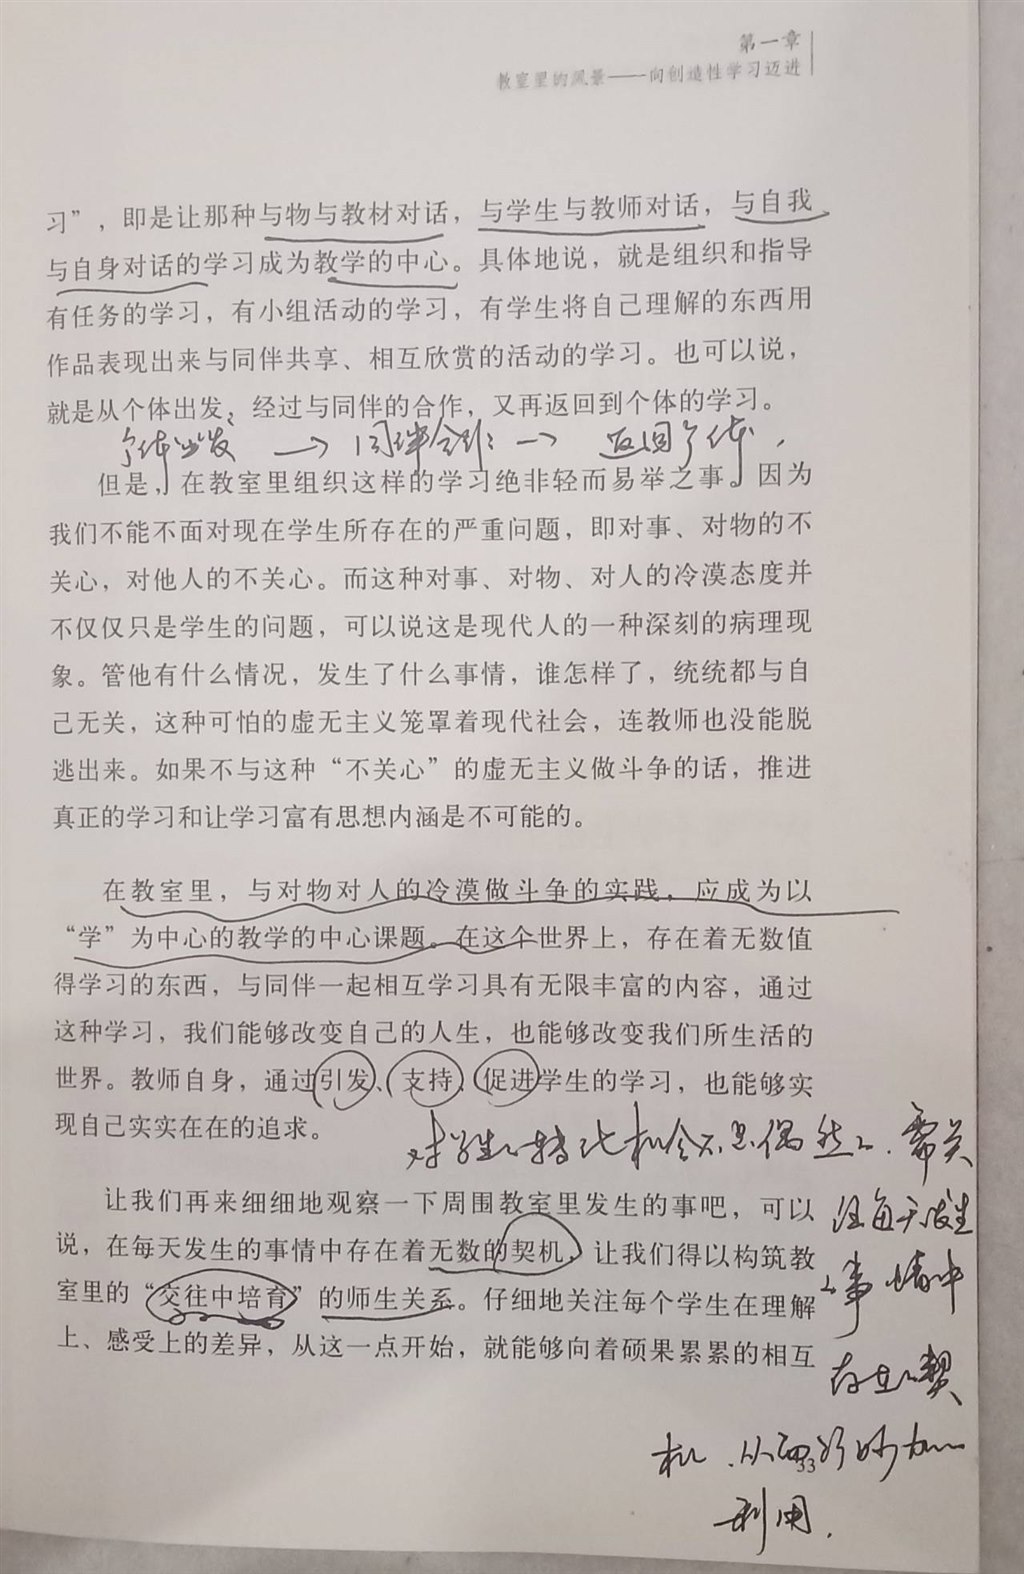 第一章
教室里的风景——向创造性学习迈进
习”，即是让那种与物与教材对话，与学生与教师对话，与自我
与自身对话的学习成为教学的中心。具体地说，就是组织和指导
有任务的学习，有小组活动的学习，有学生将自己理解的东西用
作品表现出来与同伴共享、相互欣赏的活动的学习。也可以说，
就是从个体出发，经过与同伴的合作，又再返回到个体的学习。
个体出发 → 同伴合作 → 返回个体，
但是，在教室里组织这样的学习绝非轻而易举之事。因为
我们不能不面对现在学生所存在的严重问题，即对事、对物的不
关心，对他人的不关心。而这种对事、对物、对人的冷漠态度并
不仅仅只是学生的问题，可以说这是现代人的一种深刻的病理现
象。管他有什么情况，发生了什么事情，谁怎样了，统统都与自
己无关，这种可怕的虚无主义笼罩着现代社会，连教师也没能脱
逃出来。如果不与这种“不关心”的虚无主义做斗争的话，推进
真正的学习和让学习富有思想内涵是不可能的。
在教室里，与对物对人的冷漠做斗争的实践，应成为以
“学”为中心的教学的中心课题。在这个世界上，存在着无数值
得学习的东西，与同伴一起相互学习具有无限丰富的内容，通过
这种学习，我们能够改变自己的人生，也能够改变我们所生活的
世界。教师自身，通过引发、支持、促进学生的学习，也能够实
现自己实实在在的追求。
对学生的转化机会不是偶然的，需关
注每天发生
的事情中
存在的契
机，从而巧妙加以
利用．
让我们再来细细地观察一下周围教室里发生的事吧，可以
说，在每天发生的事情中存在着无数的契机，让我们得以构筑教
室里的“交往中培育”的师生关系。仔细地关注每个学生在理解
上、感受上的差异，从这一点开始，就能够向着硕果累累的相互
33